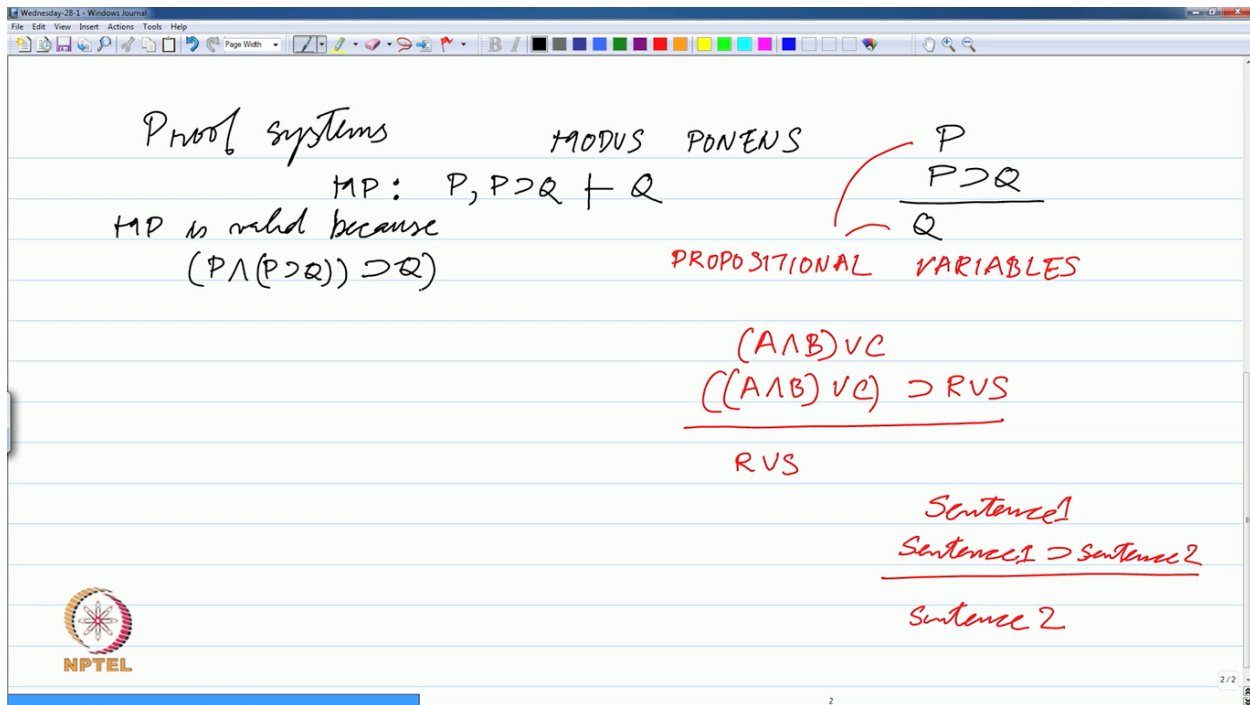 Wednesday-28-1 - Windows Journal
File Edit View Insert Actions Tools Help
Page Width
B I
Proof systems
MODUS PONENS
MP: P, P⊃Q ⊢ Q
MP is valid because
(P∧(P⊃Q)) ⊃Q)
P
P⊃Q
Q
PROPOSITIONAL VARIABLES
(A∧B)∨C
((A∧B)∨C) ⊃ R∨S
R∨S
Sentence1
Sentence1 ⊃ Sentence2
Sentence 2
NPTEL
2/2
2